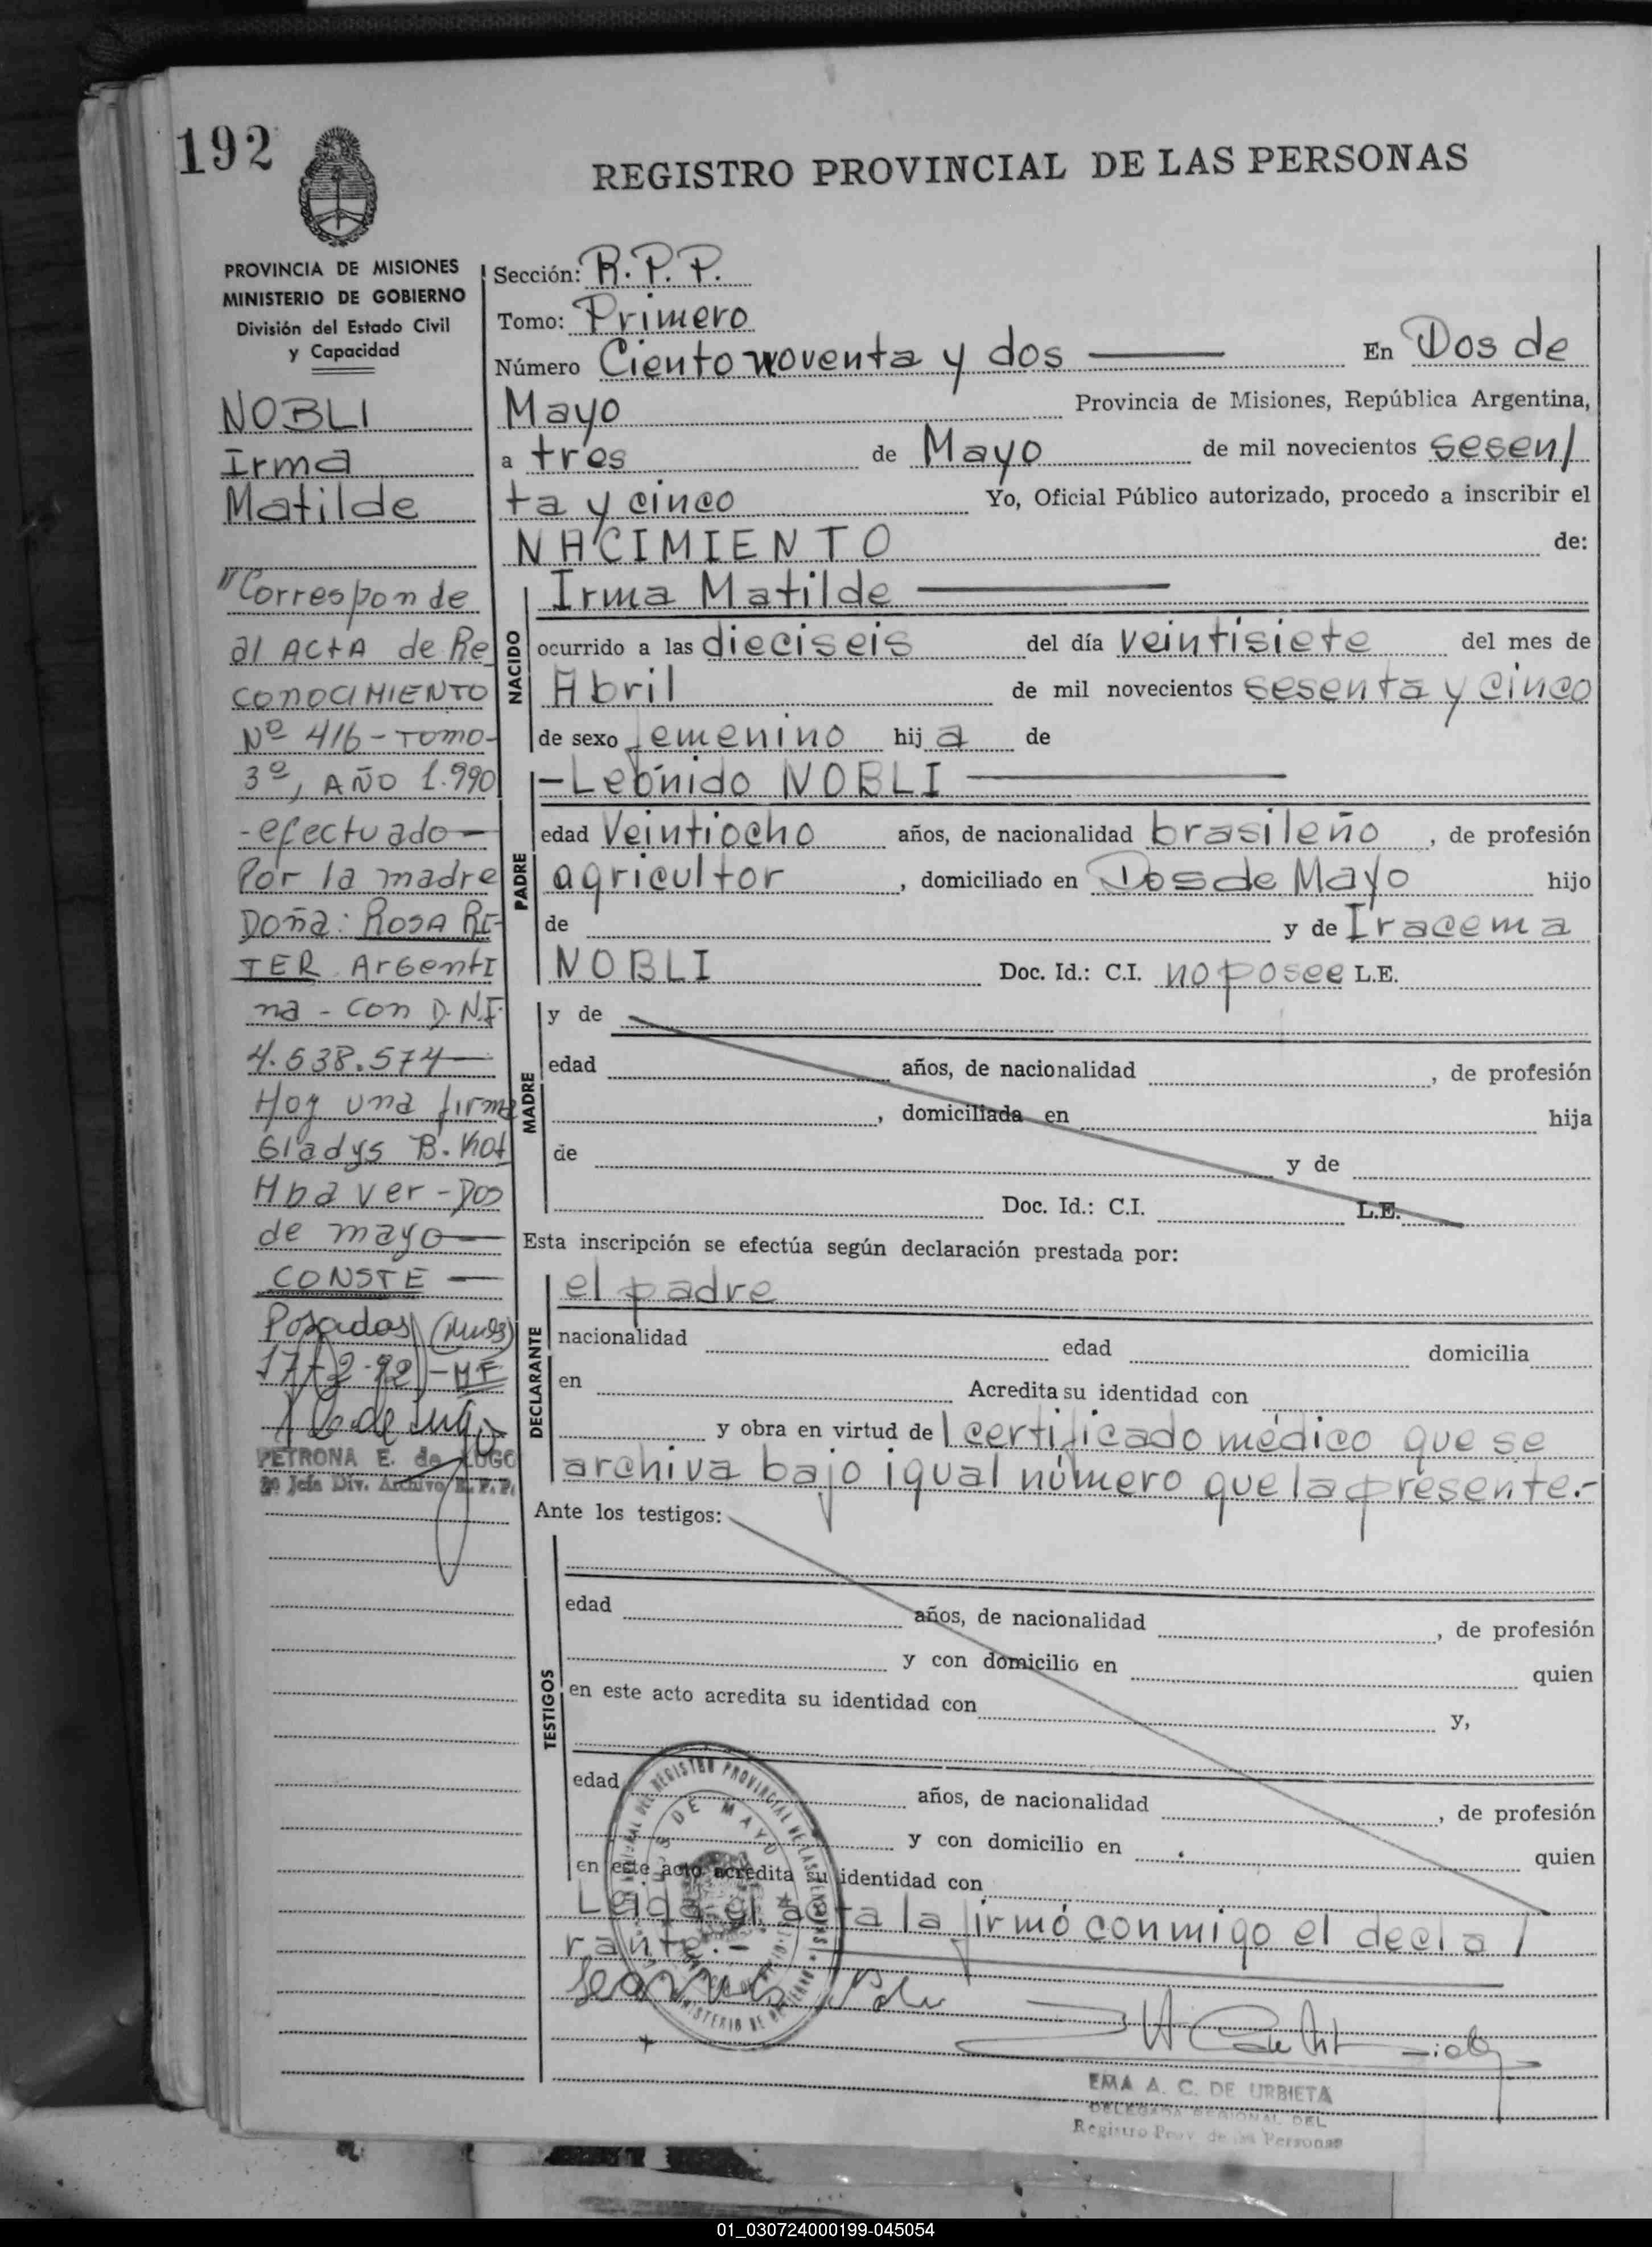 192
REGISTRO PROVINCIAL DE LAS PERSONAS
PROVINCIA DE MISIONES
MINISTERIO DE GOBIERNO
División del Estado Civil
y Capacidad
NOBLI
Irma
Matilde
"Corresponde
al ACTA de Re
CONOCIMIENTO
Nº 416 - TOMO-
3º, AÑO 1.990
-efectuado-
Por la madre
Doña: ROSA RE-
TER Argenti
na - con D.N.I.
4.638.574-
Hoy una firma
Gladys B. Kot
Hba ver - Dos
de mayo-
CONSTE -
Posadas (Mnes)
17-2-92 - MF
PETRONA E. de LUGO
2º Jefa Div. Archivo R.P.P.
Sección: R.P.P.
Tomo: Primero
Número Ciento noventa y dos — En Dos de
Mayo Provincia de Misiones, República Argentina,
a tres de Mayo de mil novecientos sesen/
ta y cinco Yo, Oficial Público autorizado, procedo a inscribir el
NACIMIENTO de:
NACIDO
Irma Matilde —
ocurrido a las dieciseis del día veintisiete del mes de
Abril de mil novecientos sesenta y cinco
de sexo femenino hij a de
PADRE
-Leónido NOBLI —
edad Veintiocho años, de nacionalidad brasileño, de profesión
agricultor, domiciliado en Dos de Mayo hijo
de y de Iracema
NOBLI Doc. Id.: C.I. no posee L.E.
MADRE
y de
edad años, de nacionalidad , de profesión
, domiciliada en hija
de y de
Doc. Id.: C.I. L.E.
Esta inscripción se efectúa según declaración prestada por:
DECLARANTE
el padre
nacionalidad edad domicilia
en Acredita su identidad con
y obra en virtud de certificado médico que se
archiva bajo igual número que la presente.-
Ante los testigos:
TESTIGOS
edad años, de nacionalidad , de profesión
y con domicilio en quien
en este acto acredita su identidad con y,
edad años, de nacionalidad , de profesión
y con domicilio en quien
en este acto acredita su identidad con
Leida el acta la firmó conmigo el decla/
rante.-
DEL REGISTRO PROVINCIAL DE LAS PERSONAS
DOS DE MAYO
MINISTERIO DE GOBIERNO
EMA A. C. DE URBIETA
DELEGADA REGIONAL DEL
Registro Prov. de las Personas
01_030724000199-045054